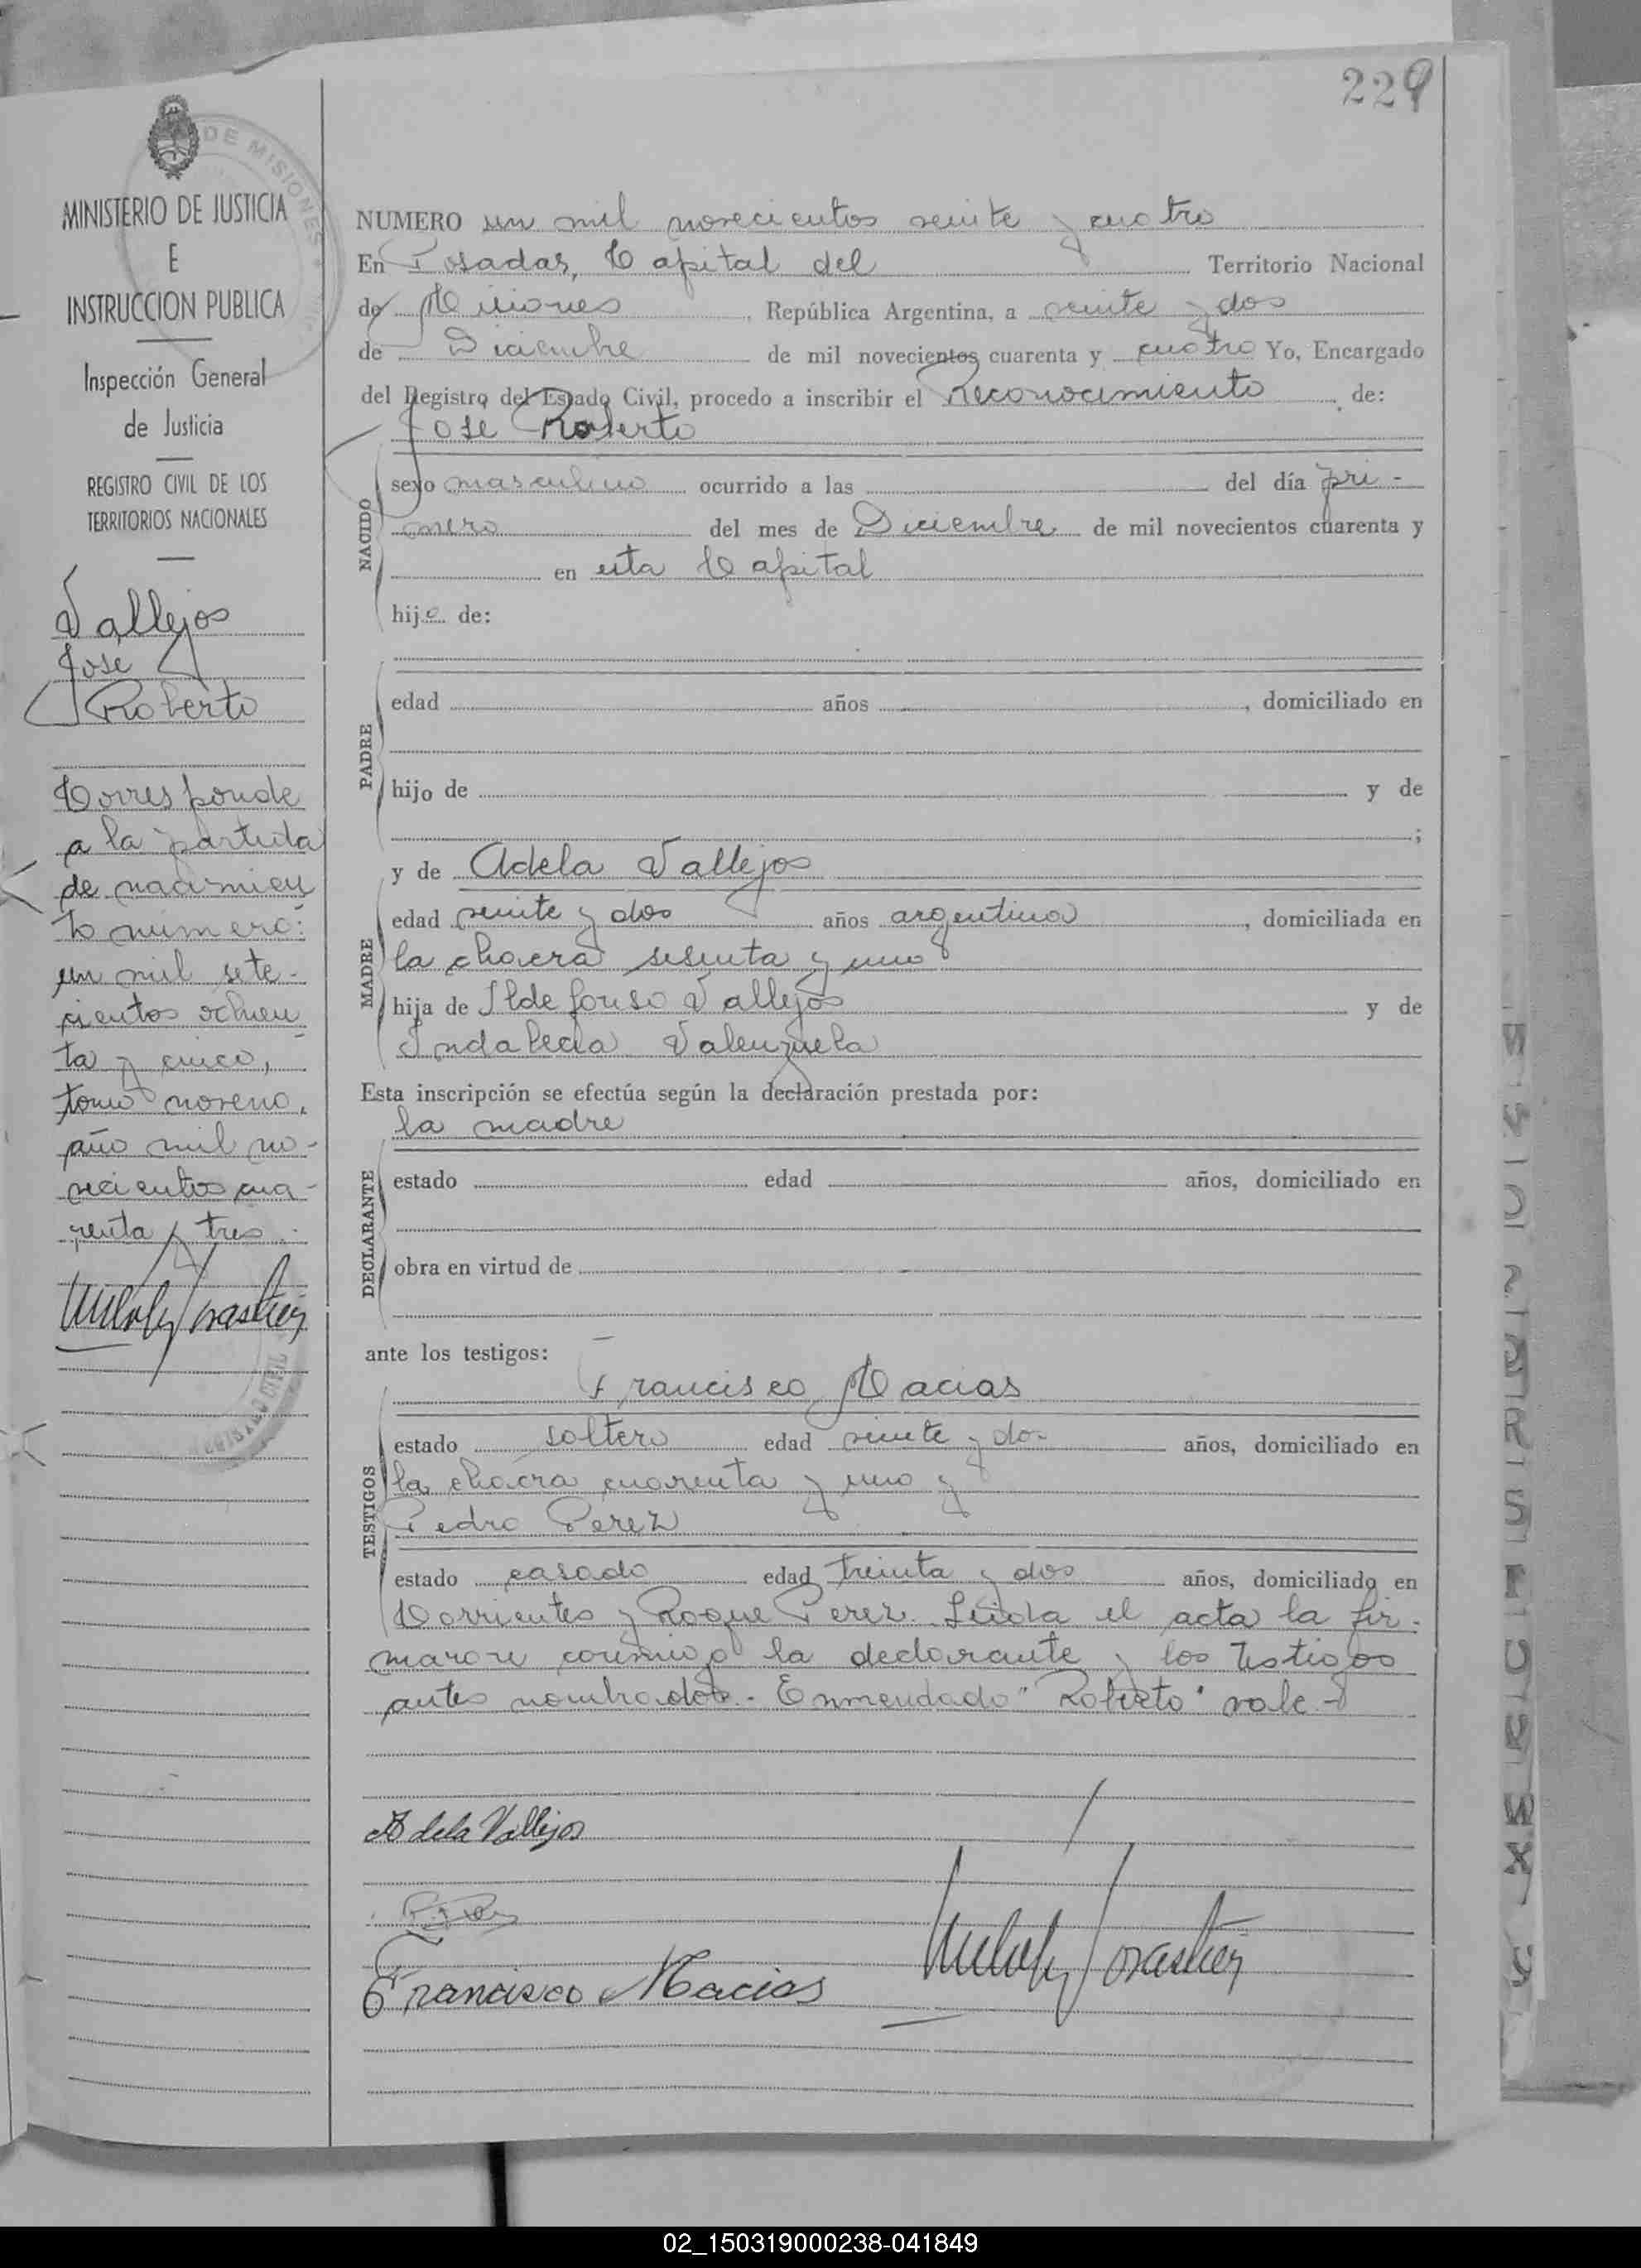 229
DE MISIONES
MINISTERIO DE JUSTICIA
E
INSTRUCCION PUBLICA
Inspección General
de Justicia
REGISTRO CIVIL DE LOS
TERRITORIOS NACIONALES
Vallejos
José
Roberto
Corresponde
a la partida
de nacimien
to número:
un mil sete-
cientos ochen
ta y cinco,
tomo noveno,
año mil no-
vecientos cua-
renta y tres.
NUMERO un mil novecientos veinte y cuatro
En Posadas, Capital del Territorio Nacional
de Misiones, República Argentina, a veinte y dos
de Diciembre de mil novecientos cuarenta y cuatro Yo, Encargado
del Registro del Estado Civil, procedo a inscribir el Reconocimiento de:
Jose Roberto
NACIDO
sexo masculino ocurrido a las del día pri-
mero del mes de Diciembre de mil novecientos cuarenta y
en esta Capital
hijo de:
PADRE
edad años , domiciliado en
hijo de y de
;
y de Adela Vallejos
MADRE
edad veinte y dos años argentina, domiciliada en
la chacra sesenta y uno
hija de Ildefonso Vallejos y de
Indalecia Valenzuela
Esta inscripción se efectúa según la declaración prestada por:
la madre
DECLARANTE
estado edad años, domiciliado en
obra en virtud de
ante los testigos:
Francisco Macias
TESTIGOS
estado soltero edad veinte y dos años, domiciliado en
la chacra cuarenta y uno y
Pedro Perez
estado casado edad treinta y dos años, domiciliado en
Corrientes y Roque Perez. Leida el acta la fir-
maron conmigo la declarante y los testigos
antes nombrados.- Enmendado "Roberto" vale.-
Adela Vallejos
Francisco Macias
REGISTRO CIVIL
02_150319000238-041849